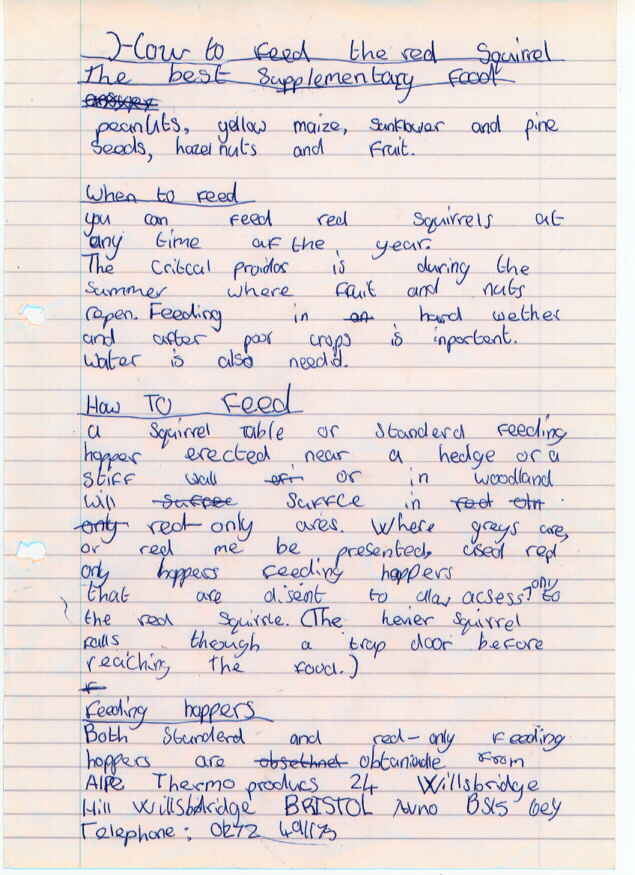 How to Feed the red Squirrel
The best Supplementary Food
peanuts, yellow maize, sunflower and pine
Seeds, hazel nuts and Fruit.
When to Feed
you can Feed red Squirrels at
any time of the year.
The Critcal proidos is during the
Summer where Fruit and nuts
repen. Feeding in hard wether
and after poor crops is inportent.
Water is also needid.
How TO Feed
a Squirrel Table or Standerd Feeding
hopper erected near a hedge or a
Stiff wall or in woodland
will Suffce in
red-only ares. Where greys are,
or red me be presented, used red
only hoppers Feeding hoppers
that are disent to alay acsess only to
the red Squirrle. (The hevier Squirrel
Falls through a trap door before
reaching the Food.)
Feeding hoppers
Both Standerd and red-only Feeding
hoppers are obtaniadle From
Thermo producs 24 Willsbridge
Hill Willsbridge BRISTOL BS15 6ey
Telephone: 0272